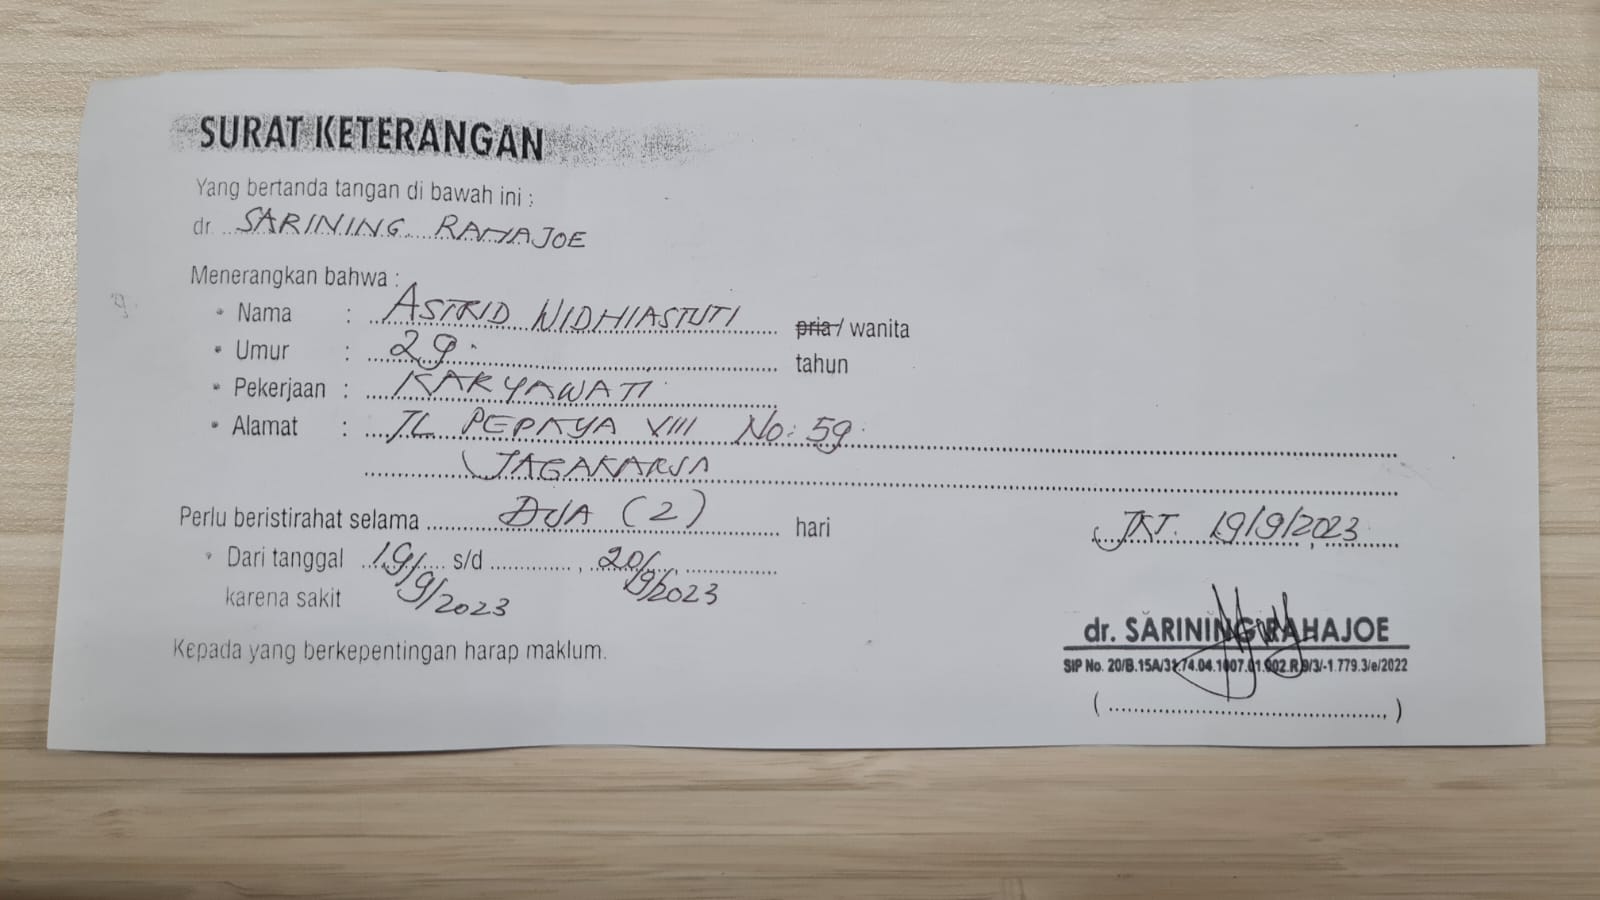 SURAT KETERANGAN
Yang bertanda tangan di bawah ini :
dr. SARINING RAHAJOE
Menerangkan bahwa :
• Nama : ASTRID WIDHIASTUTI pria / wanita
• Umur : 29 tahun
• Pekerjaan : KARYAWATI
• Alamat : JL PEPAYA VIII No: 59
JAGAKARSA
Perlu beristirahat selama DUA (2) hari
• Dari tanggal 19/9/2023 s/d 20/9/2023
karena sakit
Kepada yang berkepentingan harap maklum.
JKT. 19/9/2023
dr. SARINING RAHAJOE
SIP No. 20/B.15A/31.74.04.1007.01.002.R.9/3/-1.779.3/e/2022